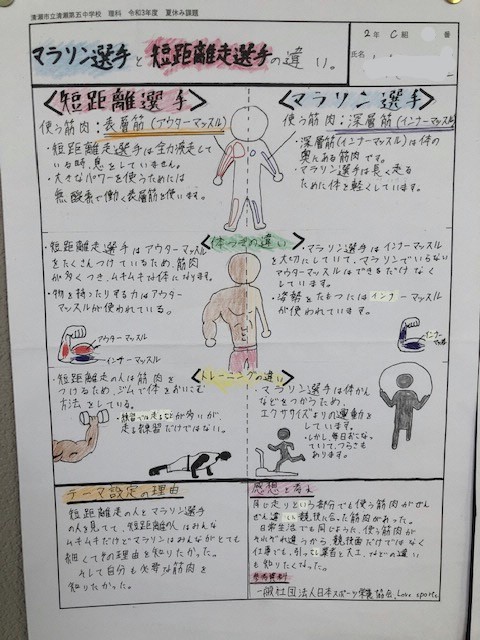 清瀬市立清瀬第五中学校 理科 令和3年度 夏休み課題
2年 C組 番
氏名
マラソン選手と短距離走選手の違い。
<短距離選手>
使う筋肉:表層筋(アウターマッスル)
・短距離走選手は全力疾走して
いる時、息をしていません。
・大きなパワーを使うためには
無酸素で働く表層筋を使います。
<マラソン選手>
使う筋肉:深層筋(インナーマッスル)
・深層筋(インナーマッスル)は体の
奥にある筋肉です。
・マラソン選手は長く走る
ために体を軽くしています。
<体つきの違い>
・短距離走選手はアウターマッスル
をたくさんつけているため、筋肉
が多くつき、ムキムキな体になります。
・物を持ったりする力はアウター
マッスルが使われている。
アウターマッスル
インナーマッスル
・マラソン選手はインナーマッスル
を大切にしていて、マラソンでいらない
アウターマッスルはできるだけなく
しています。
・姿勢をたもつにはインナーマッスル
が使われています。
インナー
<トレーニングの違い>
・短距離走の人は筋肉を
つけるため、ジムで体をおいこむ
方法をしている。
・練習では走ることが多いが、
走る練習だけではない。
・マラソン選手は体かん
などをつかうため、
エクササイズよりの運動を
しています。
・しかし、毎日おこな
っていて、つらさも
あります。
テーマ設定の理由
短距離走の人とマラソン選手
の人を見てて、短距離の人はみんな
ムキムキだけどマラソンはみんながとても
細くてその理由を知りたかった。
そして自分も必要な筋肉を
知りたかった。
感想と考え
同じ走りという部分でも使う筋肉がぜん
ぜん違い競技に合った筋肉があった。
日常生活でも同じような、使う筋肉が
それぞれ違うから、競技面だけではなく
仕事でも、引っこし業者と大工、などの違い
も知りたくなった。
参考資料
一般社団法人日本スポーツ栄養協会、Love sports.